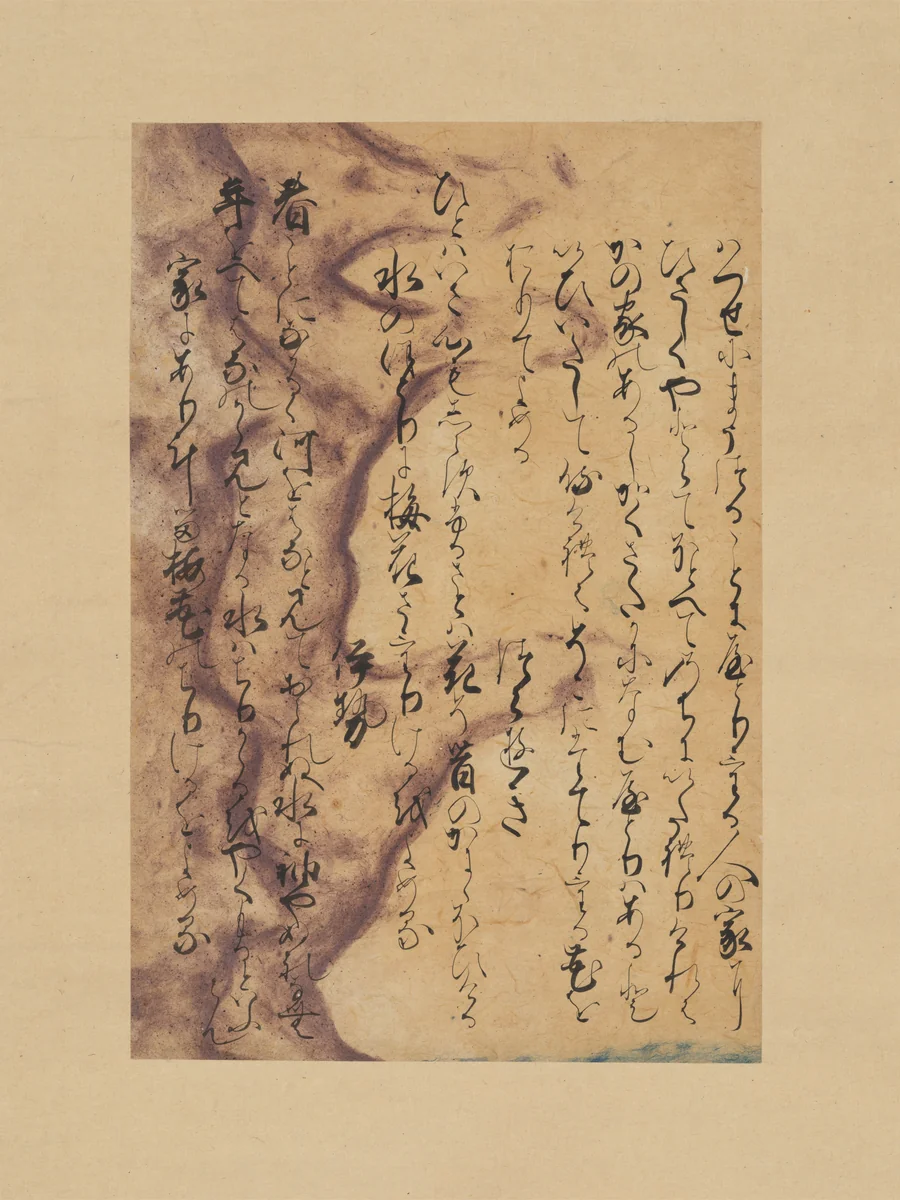 はつせにまうつることにやとりける人の家に
ひさしくやとらてほとへてのちにいたれりけれは
かの家のあるしかくさたかになむやとりはあると
いひいたして侍けれはそこにたてりける花を
おりてよめる
つらゆき
ひとはいさ心もしらす故さとは花そ昔のかにゝほひける
水のほとりに梅花さけりけるをよめる
伊勢
春ことになかるゝ河を花とみておられぬ水に袖やぬれなむ
年をへて花のかゝみとなる水はちりかゝるをやくもるといふらん
家にありける梅花のちりけるをよめる